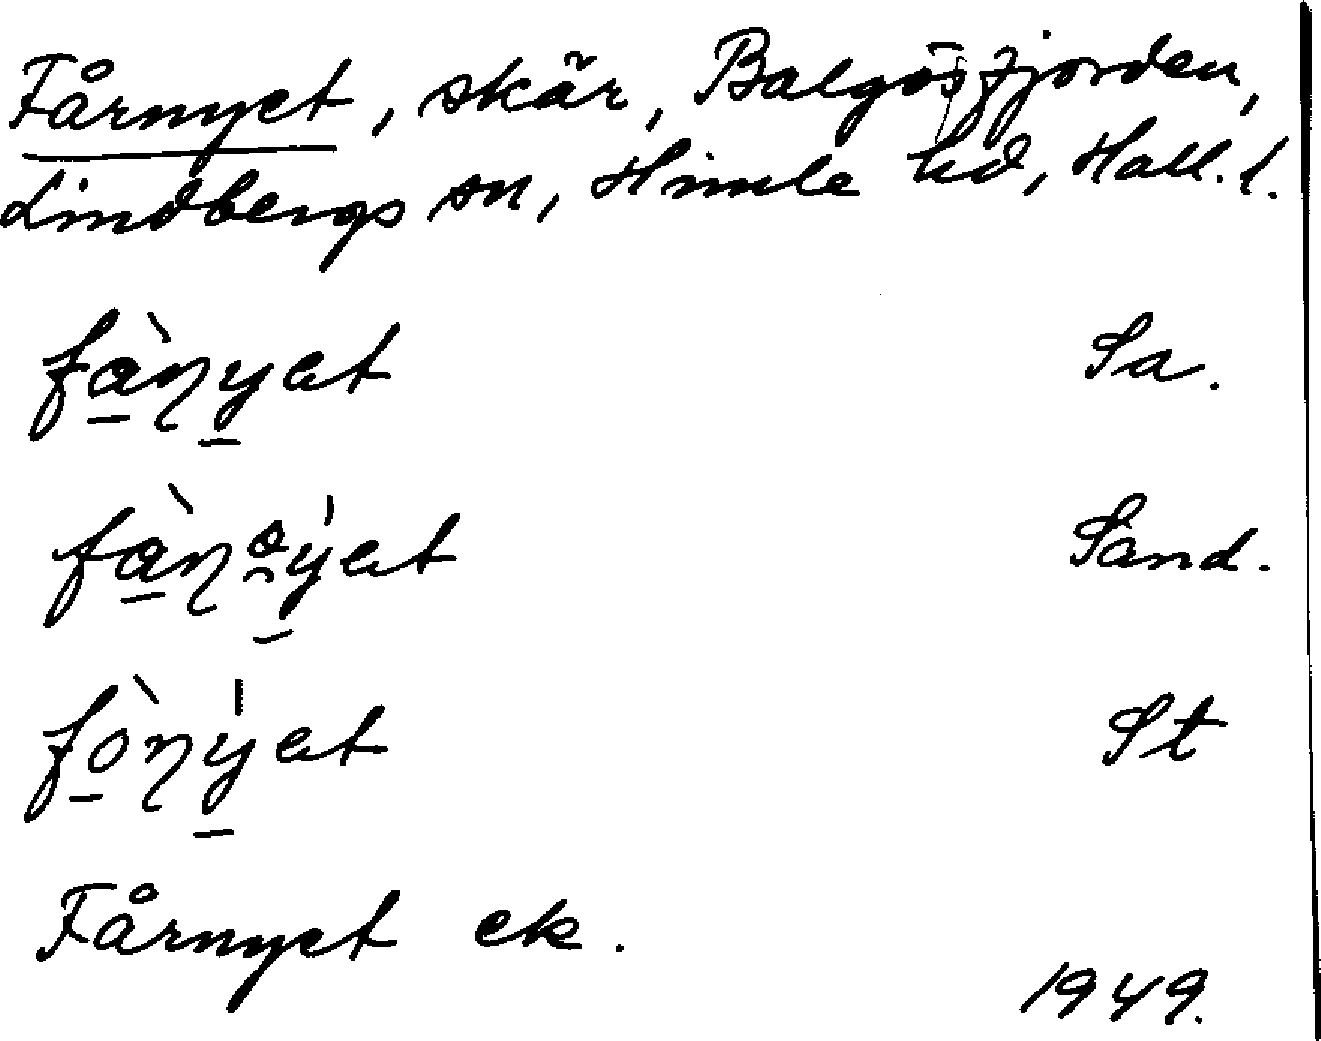 Fårnyet, skär, Balgösfjorden,
Lindbergs sn, Himle hd, Hall. l.
fà̠ɳy̠et Sa.
Sand.
fò̠ɳy̠̍et St
Fårnyet ek.
1949.